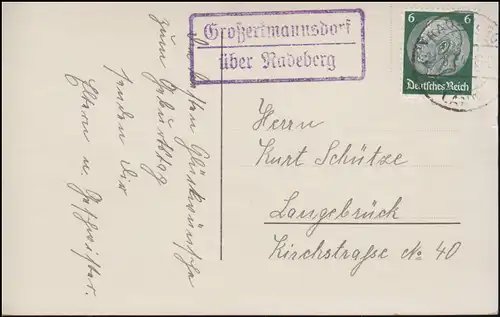 Großerkmannsdorf
über Radeberg
6 6
Deutsches Reich
Die besten Glückwünsche
zum Geburtstag
senden Dir
Eltern u. Geschwister.
Herrn
Kurt Schütze
Langebrück
Kirchstraße No 40